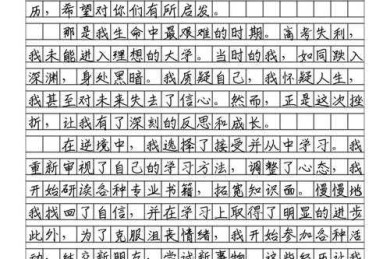 历，希望对你们有所启发。
那是我生命中最艰难的时期。高考失利，
我未能进入理想的大学。当时的我，如同跌入
深渊，身处黑暗。我质疑自己，我怀疑人生，
我甚至对未来失去了信心。然而，正是这次挫
折，让我有了深刻的反思和成长。
在逆境中，我选择了接受并从中学习。我
重新审视了自己的学习方法，调整了心态，我
开始研读各种专业书籍，拓宽知识面。慢慢地
我找回了自信，并在学习上取得了明显的进步
此外，为了克服沮丧情绪，我开始参加各种活
动，结交新朋友，尝试新事物。这些经历让我